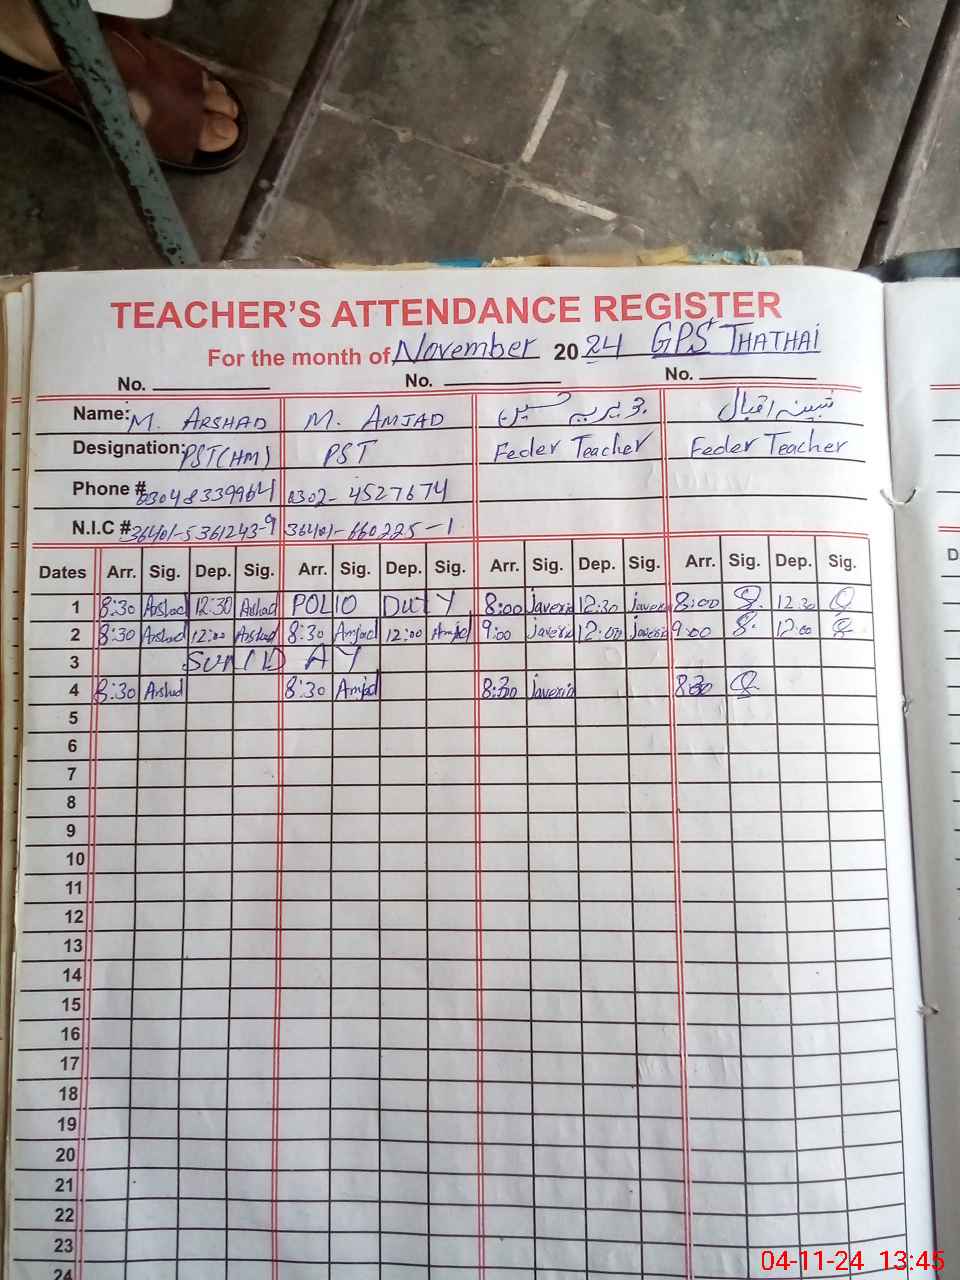 TEACHER'S ATTENDANCE REGISTER
For the month of November 2024 GPS THATHAI
No. No. No.
Name: M. ARSHAD M. AMJAD
Designation: PST(HM) PST Feder Teacher Feder Teacher
Phone # 03048339964 0302-4527674
N.I.C # 36401-5361243-9 36401-660225-1
Dates Arr. Sig. Dep. Sig. Arr. Sig. Dep. Sig. Arr. Sig. Dep. Sig. Arr. Sig. Dep. Sig.
1 8:30 Arshad 12:30 Arshad POLIO DUTY 8:00 Javeria 12:30 Javeria 8:00 12:30
2 8:30 Arshad 12:00 Arshad 8:30 Amjad 12:00 Amjad 9:00 Javeria 12:00 Javeria 9:00 12:00
3 SUNDAY
4 8:30 Arshad 8:30 Amjad 8:30 Javeria 8:30
5
6
7
8
9
10
11
12
13
14
15
16
17
18
19
20
21
22
23
24
D
04-11-24 13:45